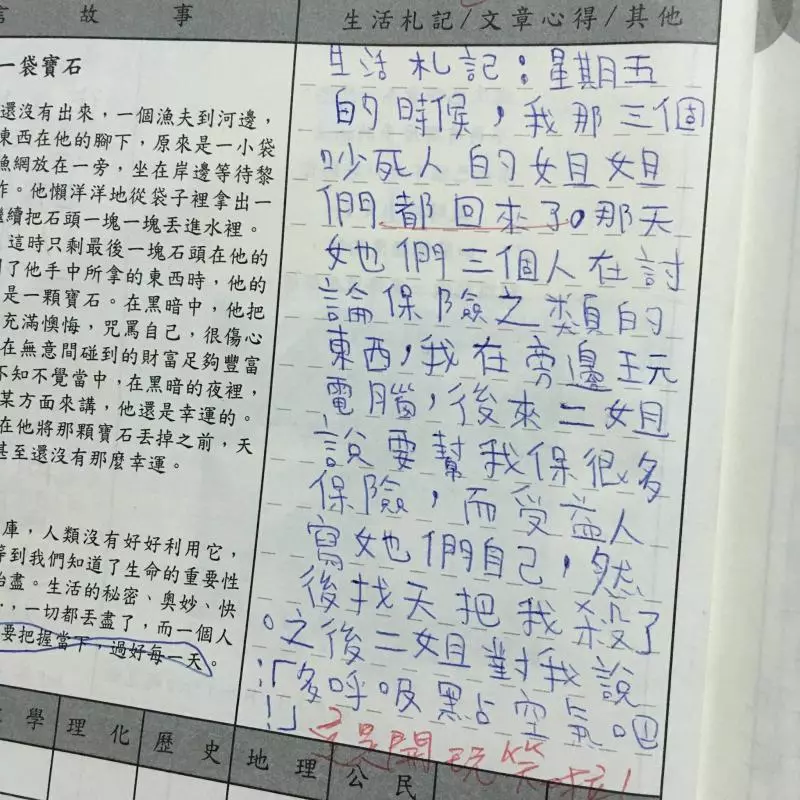 故事
生活札記/文章心得/其他
一袋寶石
還沒有出來，一個漁夫到河邊，
東西在他的腳下，原來是一小袋
漁網放在一旁，坐在岸邊等待黎
。他懶洋洋地從袋子裡拿出一
繼續把石頭一塊一塊丟進水裡。
這時只剩最後一塊石頭在他的
了他手中所拿的東西時，他的
是一顆寶石。在黑暗中，他把
充滿懊悔，咒罵自己，很傷心
在無意間碰到的財富足夠豐富
不知不覺當中，在黑暗的夜裡，
某方面來講，他還是幸運的。
在他將那顆寶石丟掉之前，天
甚至還沒有那麼幸運。
庫，人類沒有好好利用它，
等到我們知道了生命的重要性
殆盡。生活的秘密、奧妙、快
，一切都丟盡了，而一個人
要把握當下，過好每一天。
生活札記：星期五
的時候，我那三個
吵死人的姐姐
們都回來了。那天
她們三個人在討
論保險之類的
東西，我在旁邊玩
電腦，後來二姐
說要幫我保很多
保險，而受益人
寫她們自己，然
後找天把我殺了
。之後二姐對我說
：「多呼吸點空氣吧
！」這是開玩笑啦！
學 理化 歷史 地理 公民